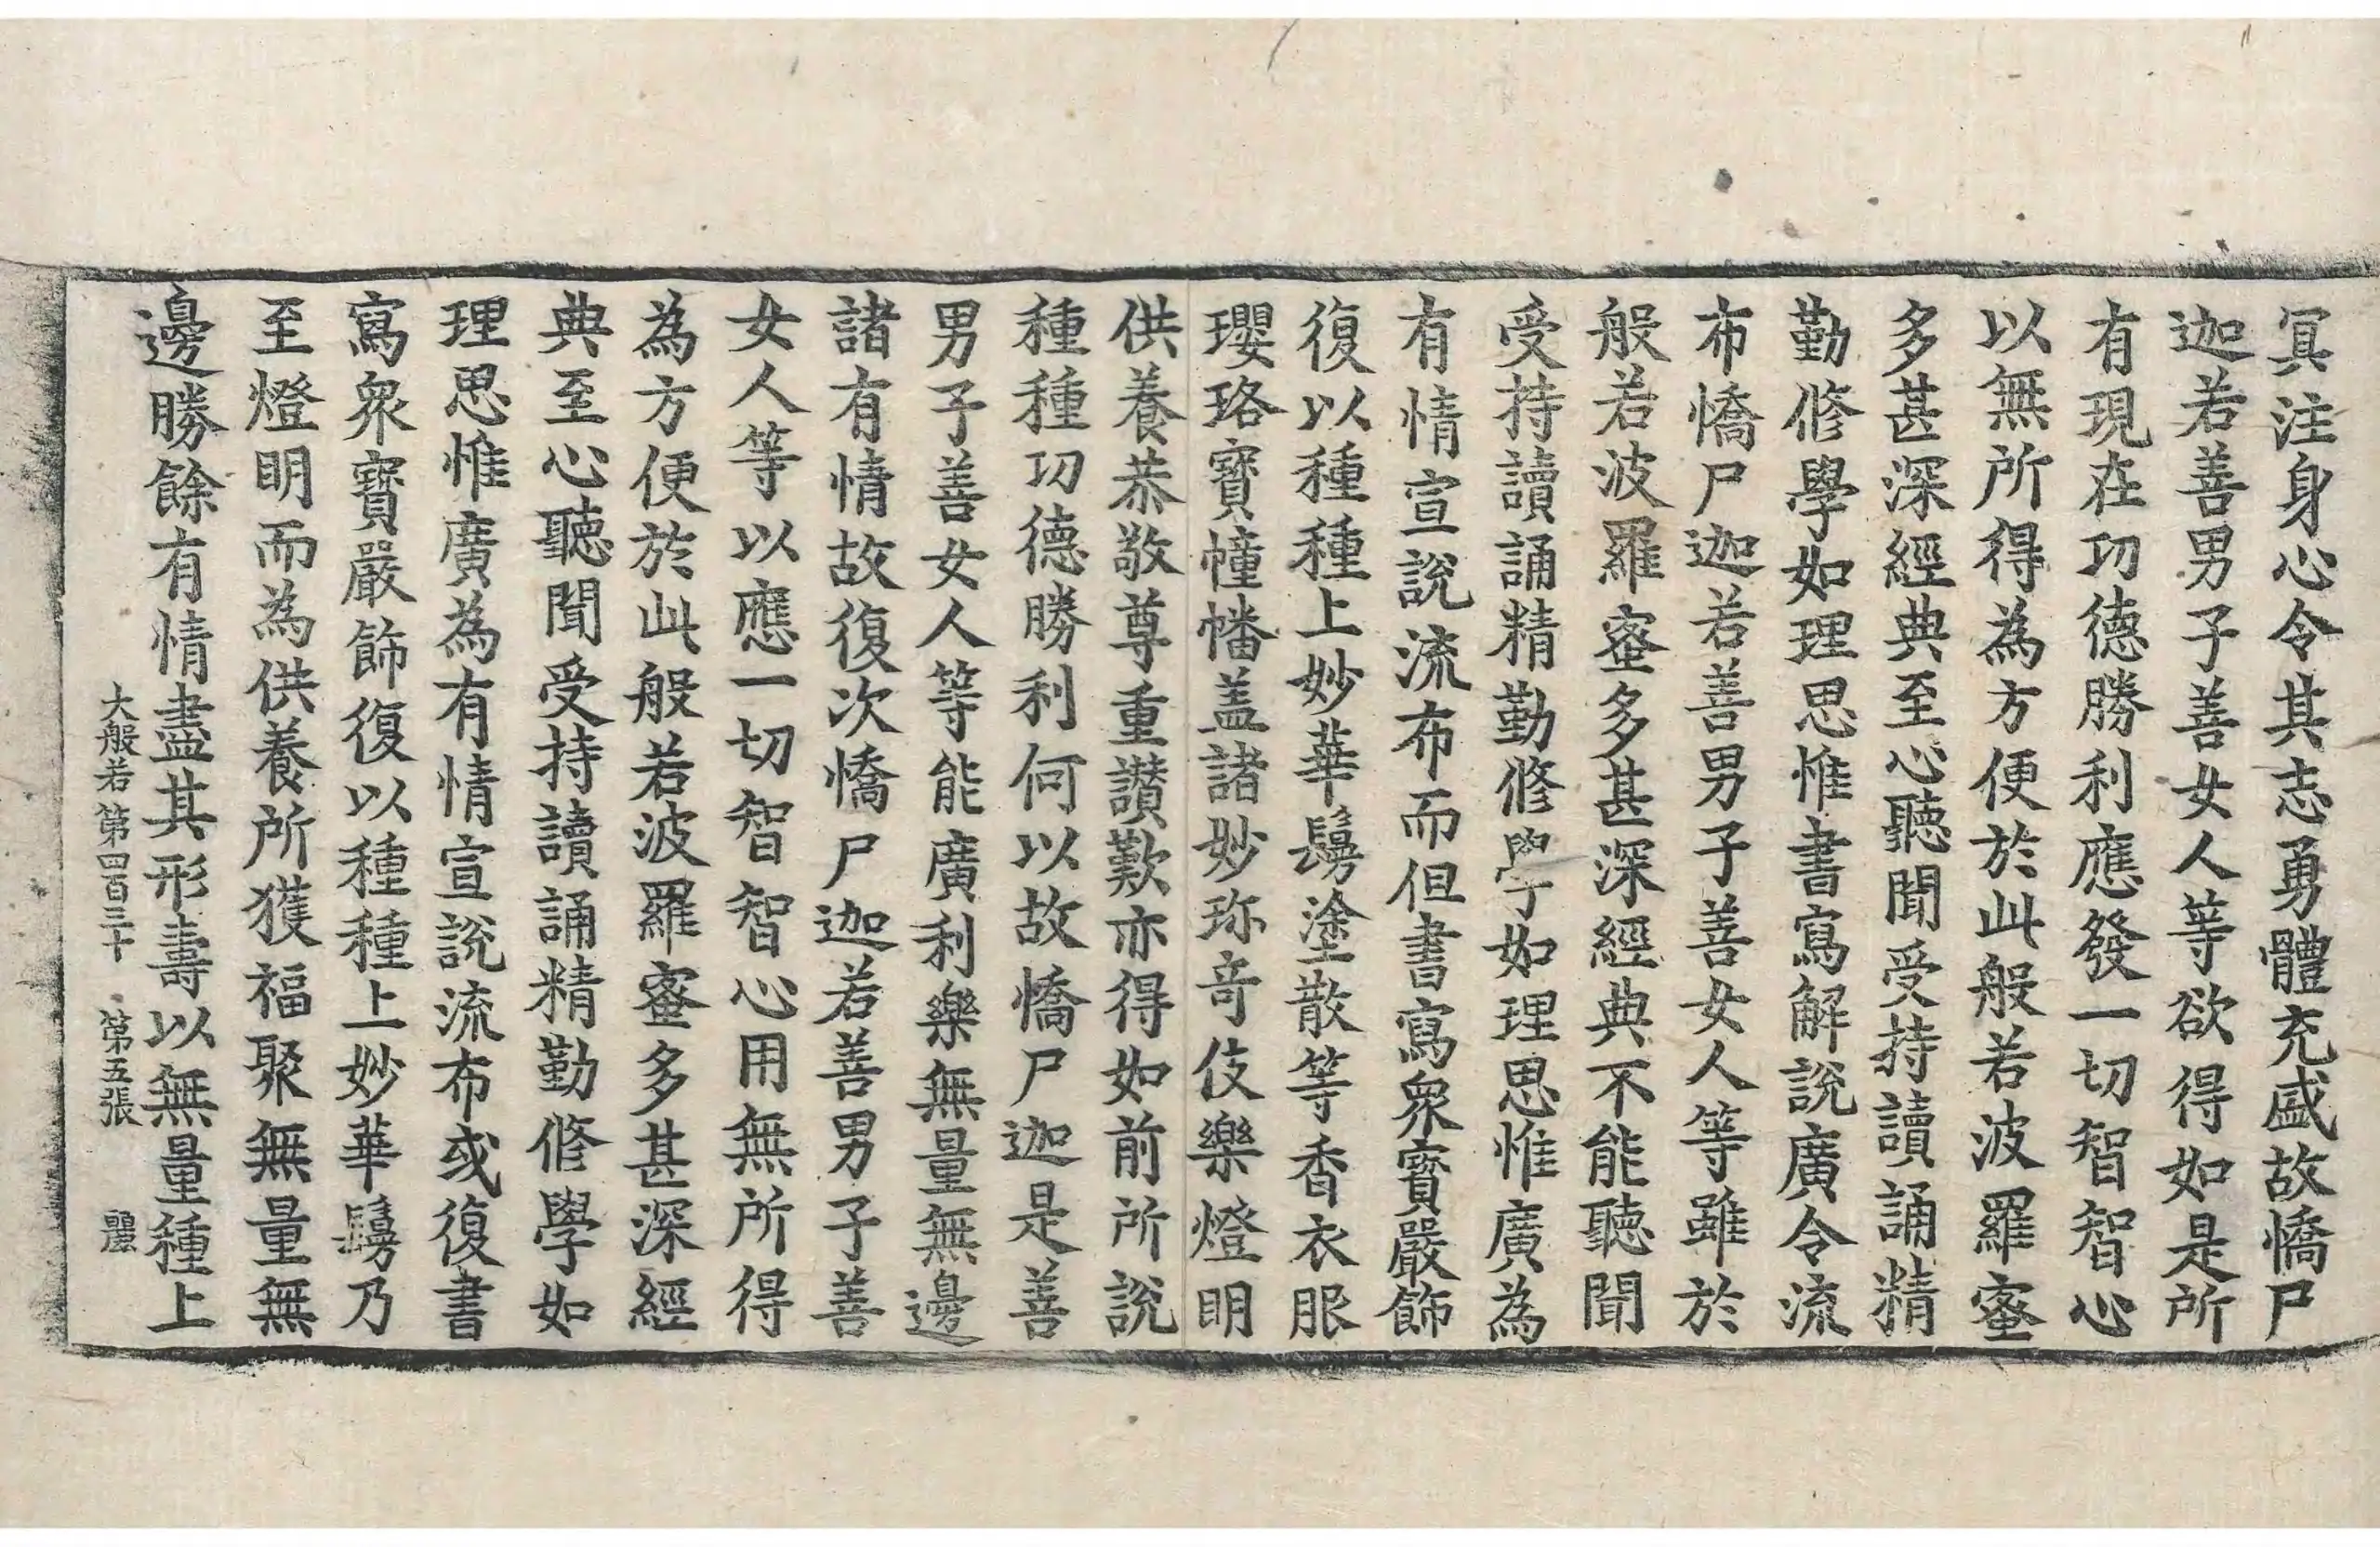 冥注身心令其志勇體充盛故憍尸
迦若善男子善女人等欲得如是所
有現在功德勝利應發一切智智心
以無所得為方便於此般若波羅蜜
多甚深經典至心聽聞受持讀誦精
勤修學如理思惟書寫解說廣令流
布憍尸迦若善男子善女人等雖於
般若波羅蜜多甚深經典不能聽聞
受持讀誦精勤修學如理思惟廣為
有情宣說流布而但書寫衆寶嚴飾
復以種種上妙華鬘塗散等香衣服
瓔珞寶幢幡盖諸妙珎奇伎樂燈明
供養恭敬尊重讃歎亦得如前所說
種種功德勝利何以故憍尸迦是善
男子善女人等能廣利樂無量無邊
諸有情故復次憍尸迦若善男子善
女人等以應一切智智心用無所得
為方便於此般若波羅蜜多甚深經
典至心聽聞受持讀誦精勤修學如
理思惟廣為有情宣說流布或復書
寫衆寶嚴飾復以種種上妙華鬘乃
至燈明而為供養所獲福聚無量無
邊勝餘有情盡其形壽以無量種上
大般若第四百三十 第五張